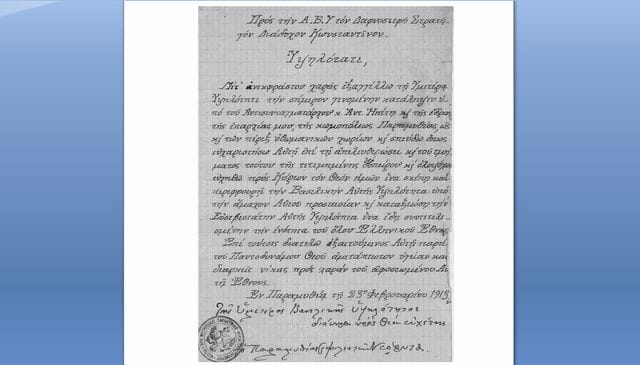 Πρὸς τὴν Α.Β.Υ τὸν Στρατη-
τὸν Διάδοχον Κωνσταντῖνον.
Ὑψηλότατε,
Μετ' ἀνεκφράστου χαρᾶς ἐξαγγέλλω τῇ Ὑμετέρᾳ
Ὑψηλότητι τὴν σήμερον γενομένην κατάληψιν ὑ-
πὸ τοῦ Ἀντισυνταγματάρχου κ. Ἀντ. Ἠπίτη κ) τῆς ἕδρας
τῆς ἐπαρχίας μου, τῆς κωμοπόλεως Παραμυθίας, ὡς
κ) τῶν πέριξ ὀθωμανικῶν χωρίων κ) σπεύδω ὅπως
εὐχαριστήσω Αὐτῇ ἐπὶ τῇ ἀπελευθερώσει κ) τοῦ τμή-
ματος τούτου τῆς τετιμημένης Ἠπείρου κ)
πρὸς Κύριον τὸν Θεὸν ἡμῶν ἵνα σκέπῃ καὶ
περιφρουρῇ τὴν Βασιλικὴν Αὐτῆς Ὑψηλότητα ὑπὸ
τὴν ἄμαχον Αὑτοῦ προστασίαν κ) καταξιώσῃ τὴν
Αὐτῆς Ὑψηλότητα ἵνα ἴδῃ συντετελε-
σμένην τὴν ἑνότητα τοῦ ὅλου Ἑλληνικοῦ Ἔθνους.
Ἐπὶ τούτοις διατελῶ ἐξαιτούμενος Αὐτῇ παρὰ
τοῦ Παντοδυνάμου Θεοῦ ἀμετάπτωτον ὑγείαν καὶ
διαρκεῖς νίκας πρὸς χαρὰν τοῦ ἀφοσιωμένου Αὐ-
τῇ Ἔθνους.
Ἐν Παραμυθίᾳ τῇ 23ῃ Φεβρουαρίου 1913
Τῆς Ὑμετέρας Βασιλικῆς Ὑψηλότητος
διάπυρος πρὸς Θεὸν εὐχέτης
Παραμυθίας